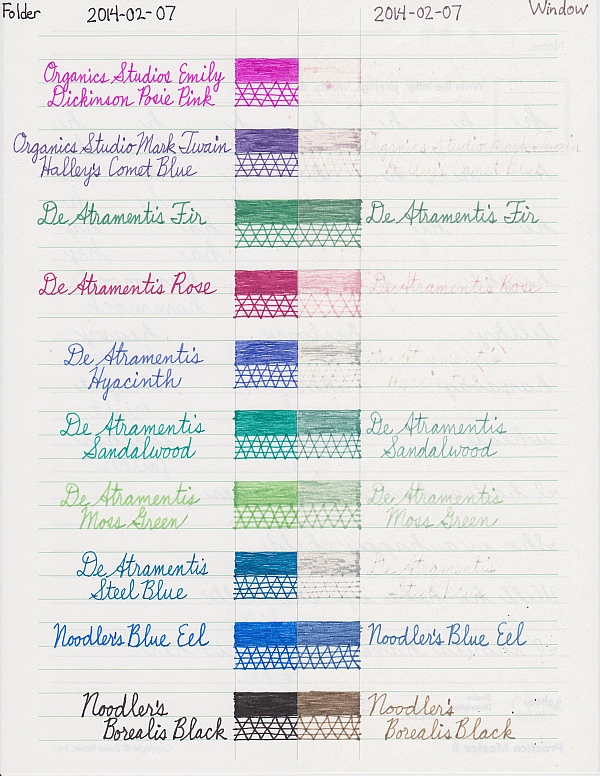 Folder 2014-02-07 2014-02-07 Window
Organics Studios Emily
Dickinson Posie Pink
Organics Studio Mark Twain Organics Studio Mark Twain
Halley's Comet Blue Halley's Comet Blue
De Atramentis Fir De Atramentis Fir
De Atramentis Rose De Atramentis Rose
De Atramentis De Atramentis
Hyacinth Hyacinth
De Atramentis De Atramentis
Sandalwood Sandalwood
De Atramentis De Atramentis
Moss Green Moss Green
De Atramentis De Atramentis
Steel Blue Steel Blue
Noodler's Blue Eel Noodler's Blue Eel
Noodler's Noodler's
Borealis Black Borealis Black